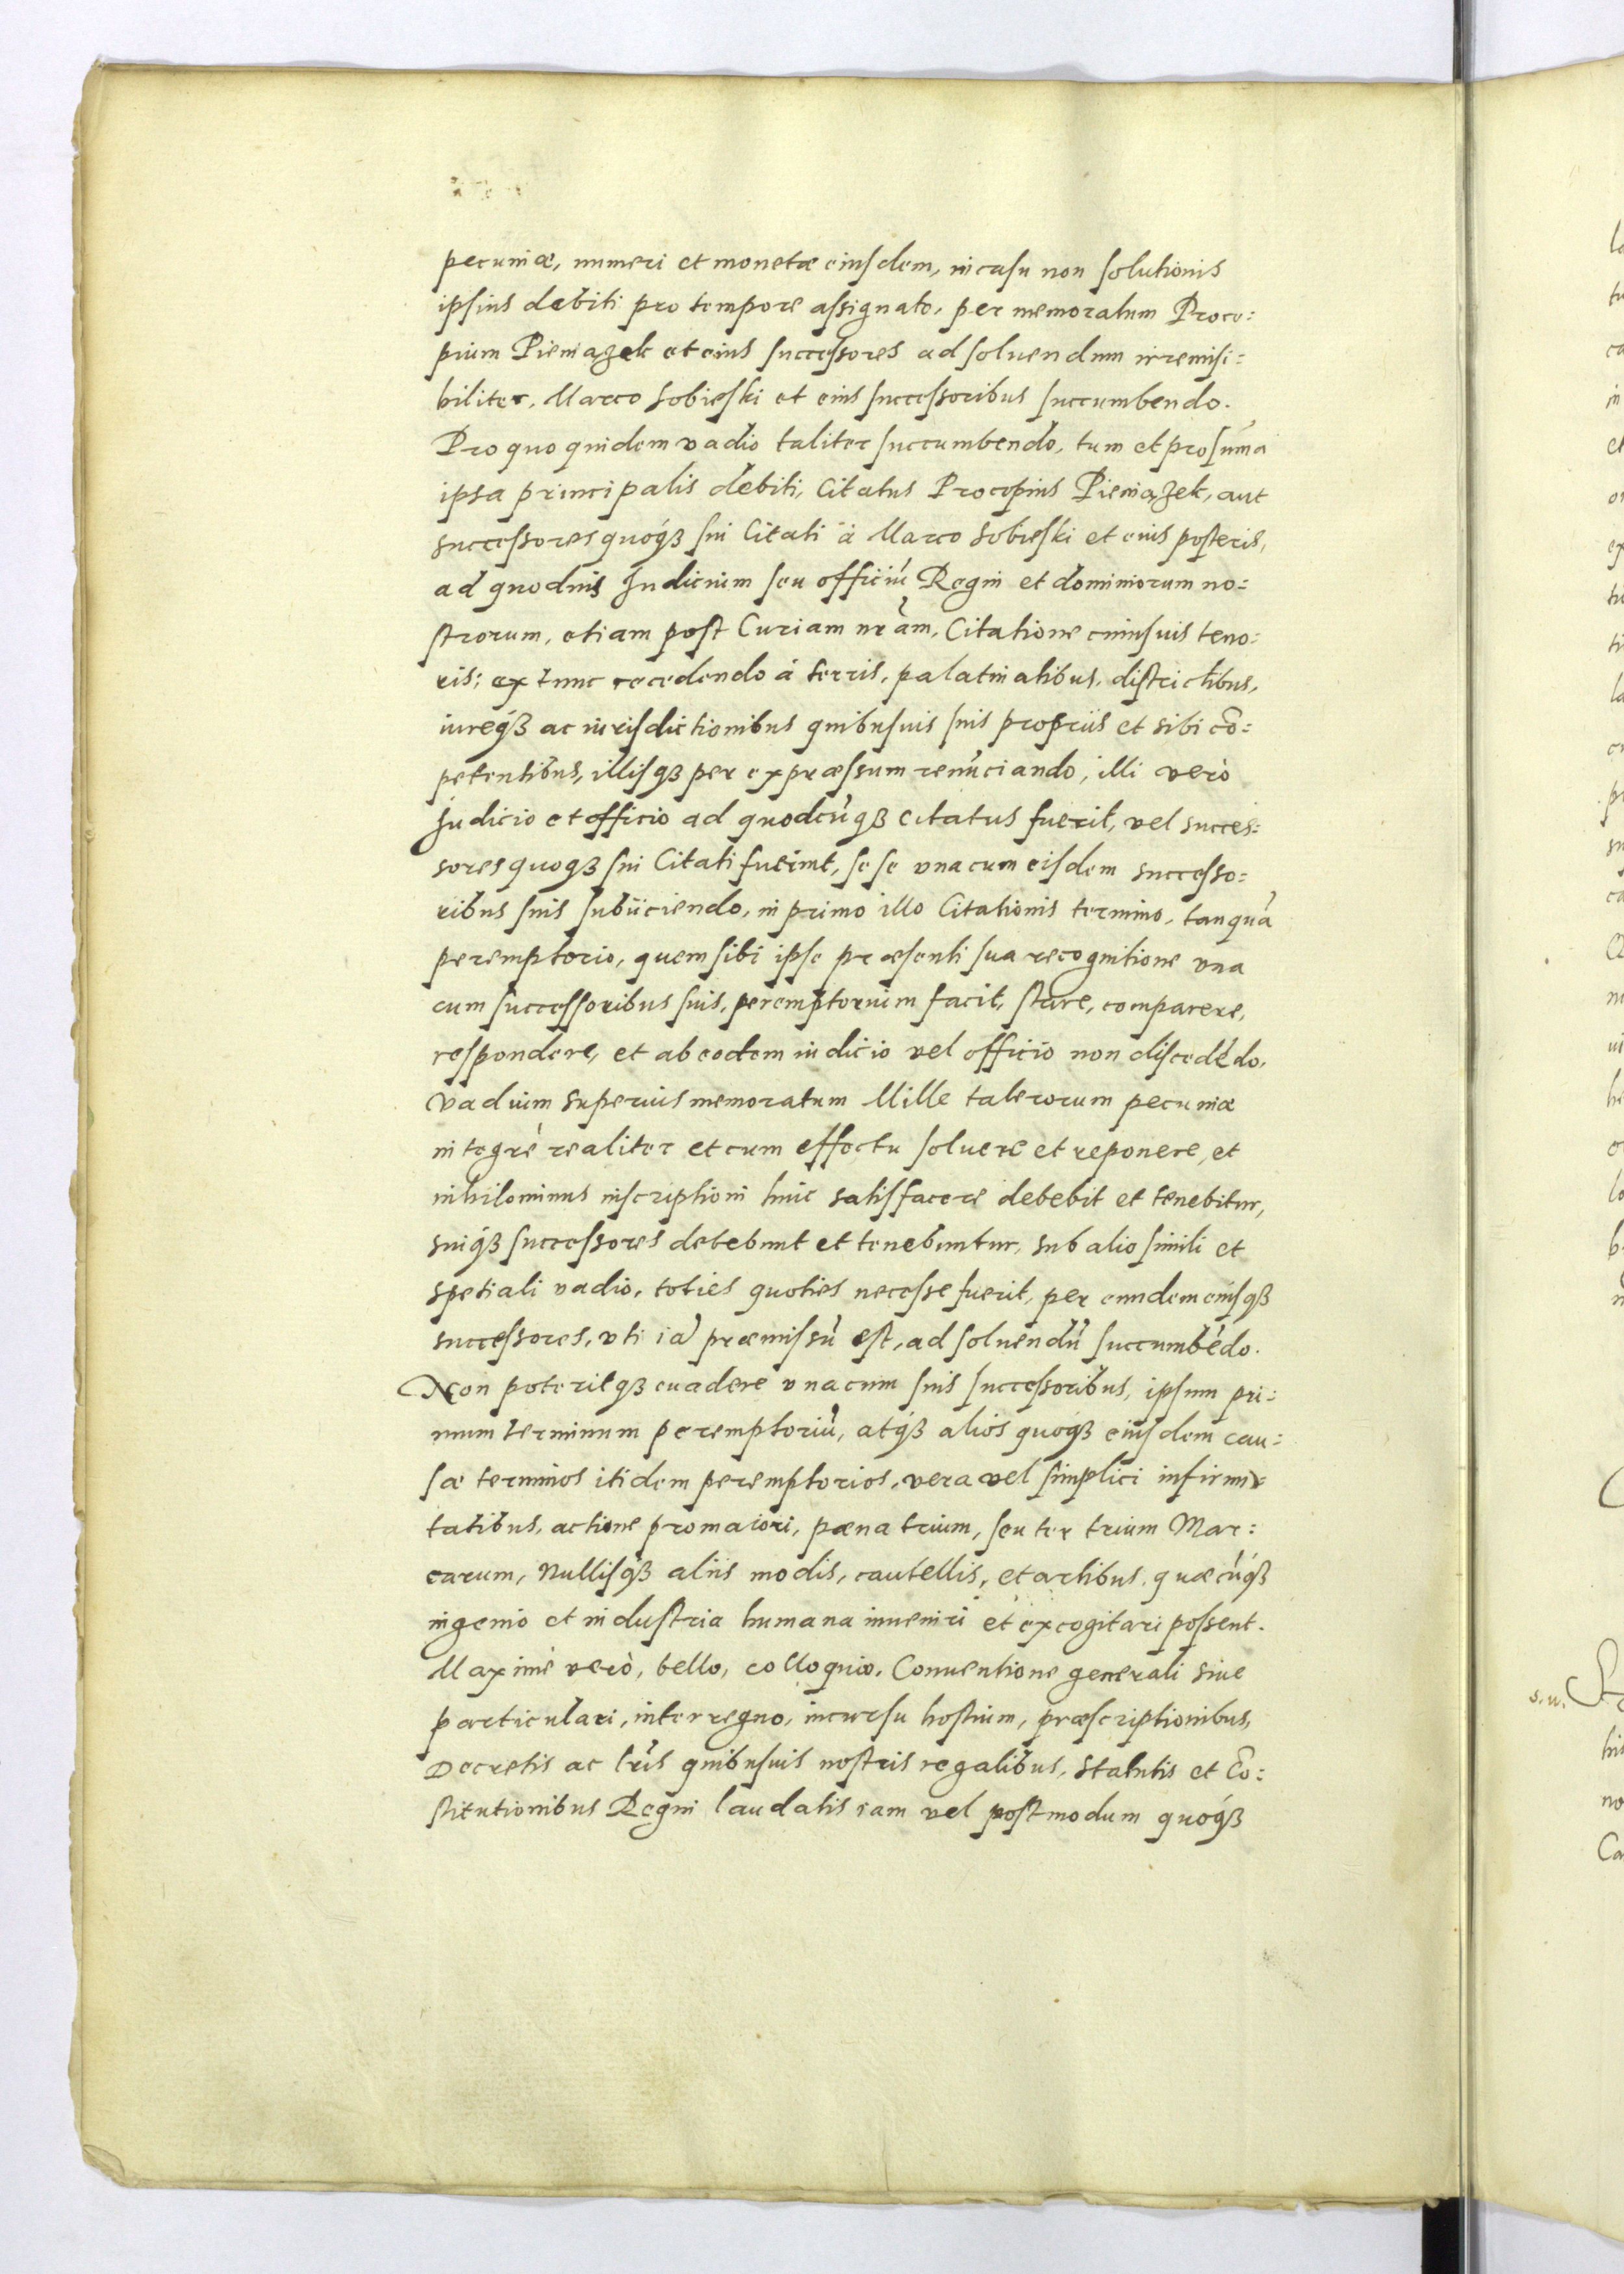 pecuniæ, numeri et monetæ eiusdem, in casu non solutionis
ipsius debiti pro tempore assignato, per memoratum Proco:
pium Pieniązek et eius successores ad soluendum irremisi:
biliter, Marco Sobieski et eius successoribus succumbendo.
Pro quo quidem vadio taliter succumbendo, tum et pro sum̄a
ipsa principalis debiti, Citatus Procopius Pieniązek, aut
successores quoq́ꝫ sui Citati à Marco Sobieski et eius posteris,
ad quoduis Judicium seu officiũ Regni et dominiorum no:
strorum, etiam post Curiam nr̃am, Citatione cuiusuis teno:
ris; ex tunc recedendo á terris, palatinatibus, districtibus,
iureq́ꝫ ac iurisdictionibus quibusuis suis propriis et sibi cõ:
petentibus, illisqꝫ per expræssum renũciando, illi verò
Judicio et officio ad quodcũqꝫ citatus fuerit, vel succes:
sores quoqꝫ sui Citati fuerint, sese vna cum eisdem successo:
ribus suis subiiciendo, in primo illo Citationis termino, tanquã
peremptorio, quem sibi ipse præsenti sua recognitione vna
cum successoribus suis, peremptorium facit, stare, comparere,
respondere, et ab eodem iudicio vel officio non discedẽdo,
Vadium superius memoratum Mille talerorum pecuniæ
integrè realiter et cum effectu soluere et reponere, et
nihilominus inscriptioni huic satisfacere debebit et tenebitur,
suiq́ꝫ successores debebunt et tenebuntur, sub alio simili et
spetiali vadio, toties quoties necesse fuerit, per eundem eiusqꝫ
successores, vti iã præmissũ est, ad soluendũ succumbẽdo.
Non poteritqꝫ euadere vna cum suis successoribus, ipsum pri:
mum terminum peremptoriũ, atq́ꝫ alios quoqꝫ eiusdem cau:
sæ terminos itidem peremptorios, vera vel simplici infirmi:
tatibus, actione pro maiori, pæna trium, seu ter trium Mar:
carum, Nullisqꝫ aliis modis, cautellis, et artibus, quæcũqꝫ
ingenio et industria humana inueniri et excogitari possent.
Maximè verò, bello, colloquio, Conuentione generali siue
particulari, interregno, incursu hostium, præscriptionibus,
Decretis ac lr̃is quibusuis nostris regalibus, Statutis et Cõ:
stitutionibus Regni laudatis iam vel postmodum quoq́ꝫ